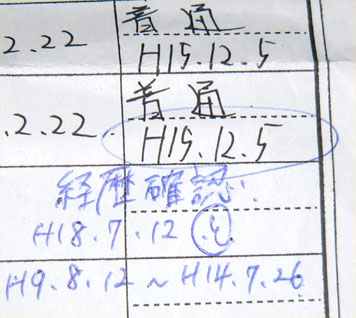 普通
2.22
H15.12.5
普通
.2.22.
H15.12.5
経歴確認.
H18.7.12
H9.8.12 ~ H14.7.26